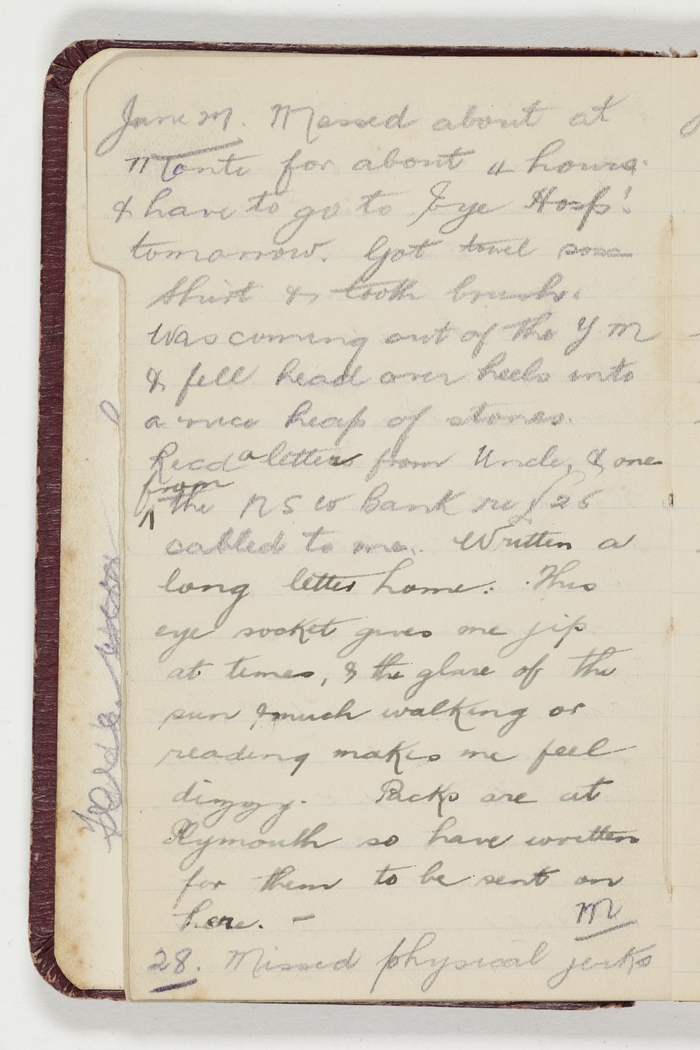 June M. Messed about at
Monte for about 4 hours
& have to go to Eye Hosp!
tomorrow. Got towel sox
Shirt & tooth brush.
Was coming out of the Y M
& fell head over heels into
a nice heap of stones.
Recd a letter from Uncle, & one
from
the N S W Bank re £25
cabled to me. Written a
long letter home. This
eye socket gives me jip
at times, & the glare of the
sun & much walking or
reading makes me feel
dizzy. Packs are at
Plymouth so have written
for them to be sent on
here. – M
28. Missed physical jerks